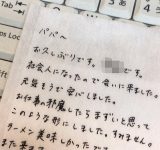 パパへ
お久しぶりです。 です。
社会人になったので会いに来ました。
元気そうで安心しました。
お仕事の邪魔したらまずいと思って
このような形にしました。すみません。
ラーメン美味しかったです